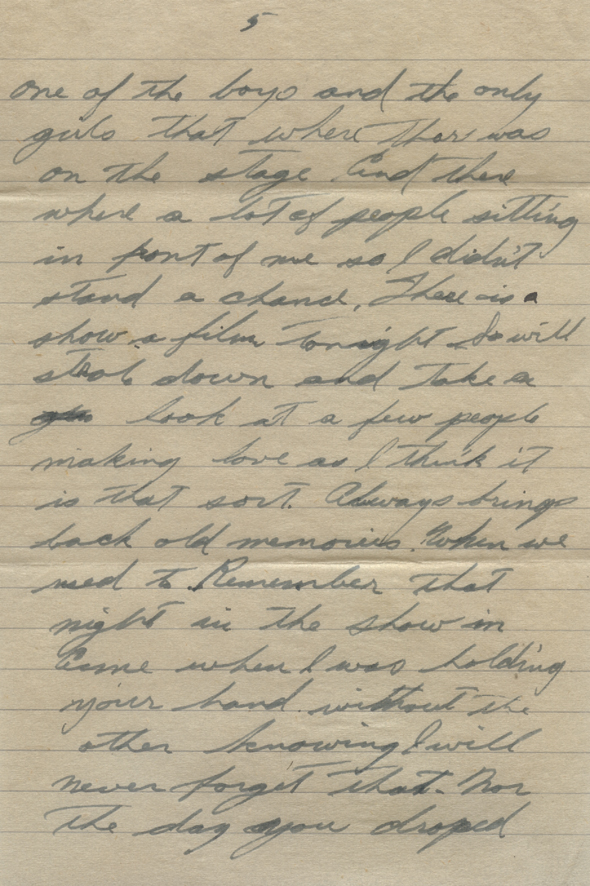 5
one of the boys and the only
girls that where ther was
on the stage. And there
where a lot of people sitting
in front of me so I didn't
stand a chance. There is a
show a film tonight So will
down and take a
look at a few people
making love as I think it
is that sort. Always brings
back old memories. When we
used to. Remember that
night in the show in
when I was holding
your hand without the
other knowing I will
never forget that. Nor
the day you droped